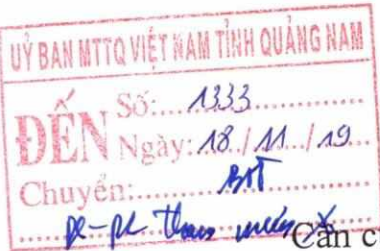 UỶ BAN MTTQ VIỆT NAM TỈNH QUẢNG NAM
ĐẾN
Số:....1333....................
Ngày:.18./.11./.19.
Chuyển:..........BTT..............
Căn c